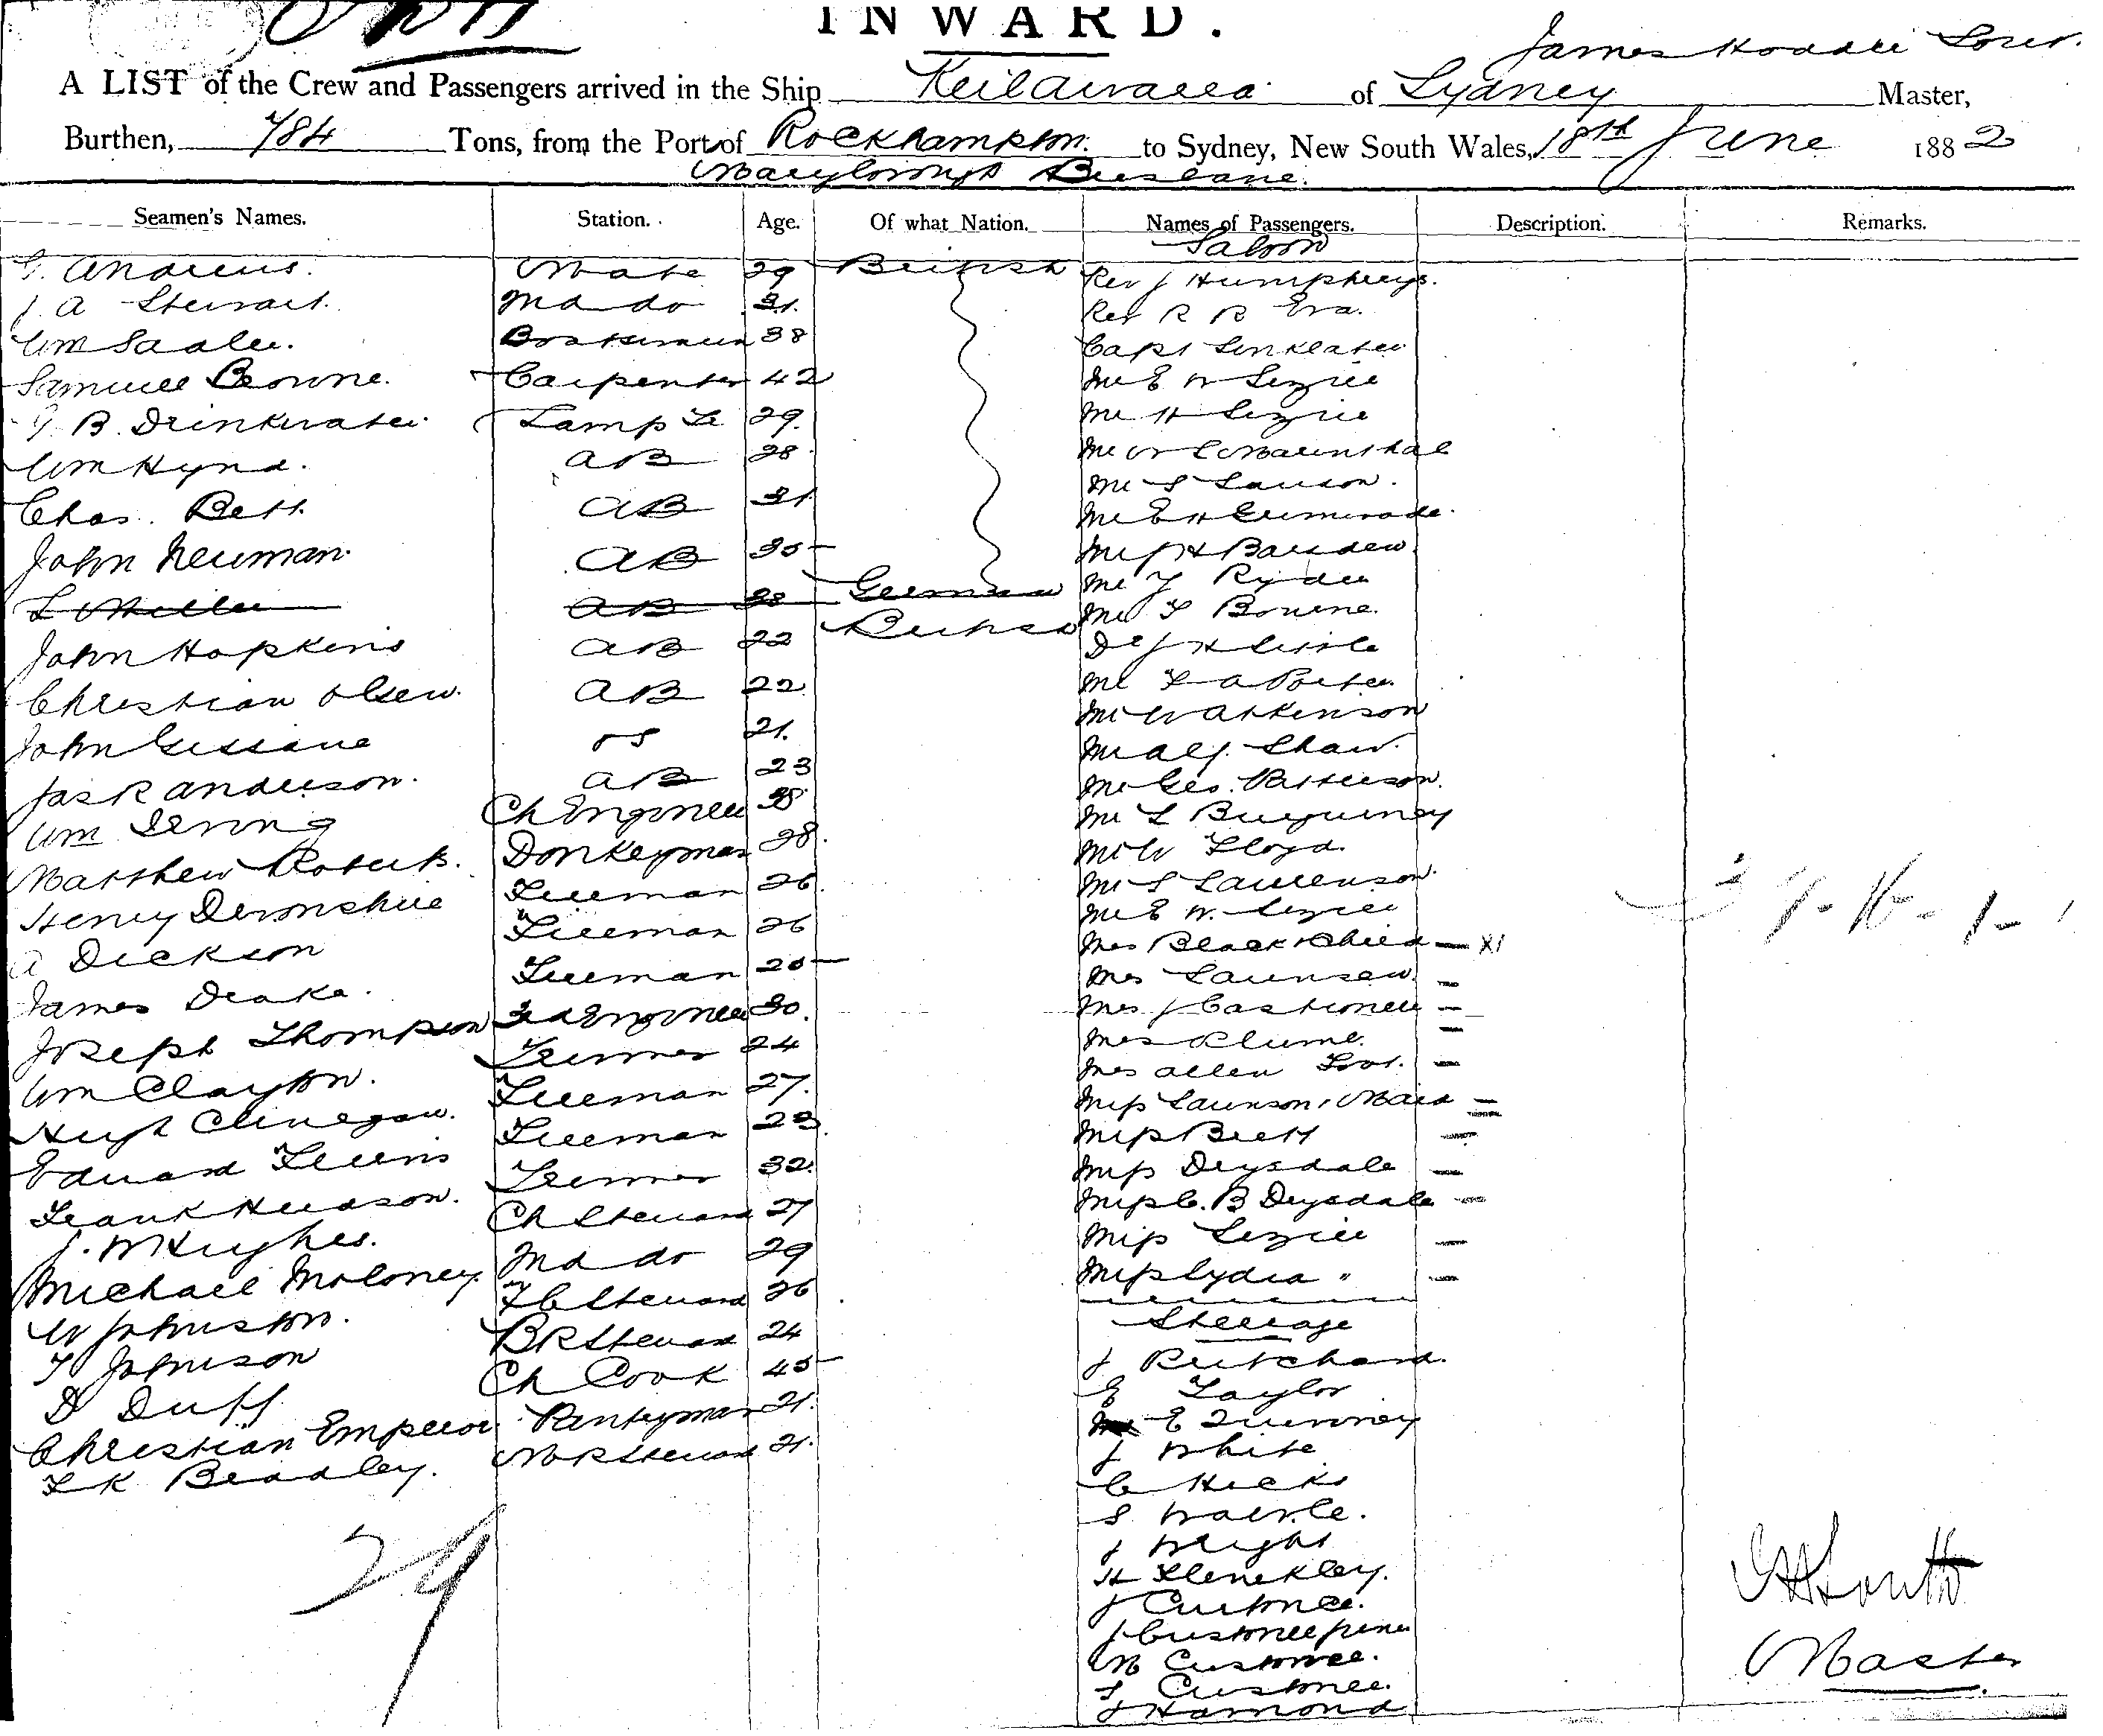 INWARD.
James Hoddle
A LIST of the Crew and Passengers arrived in the Ship Keilawarra of Sydney Master,
Burthen, 784 Tons, from the Port of Rockhampton. to Sydney, New South Wales, 18th June 1882
Maryborough Brisbane.
Seamen's Names. Station. Age. Of what Nation. Names of Passengers. Description. Remarks.
Saloon
G. Andrews. Mate 29 British Rev J Humphreys.
J. A Stewart. 2nd do 31. Rev R R Eva.
Wm Sadler. Boatswain 38 Capt Linklater
Samuel Browne. Carpenter 42 Mr E W
G. B. Drinkwater Lamp Tr 29. Mr H
Wm Hynd. AB 28 Mr W L
Chas. Bett. AB 31 Mr S Lawson.
John Newman. AB 35 Mr E H
L Miller AB 28 German Mr J H
John Hopkins AB 22 British Mr J Ryder
Christian Olsen. AB 22 Mr F Bourne.
John Gissane OS 21. Dr J H Little
Jas R Anderson. AB 23 Mr F A Porter.
Wm Irving Ch Engineer 38 Mr W Atkinson
Matthew Roberts. Donkeyman 28. Mr Alf. Shaw.
Henry Devonshire Fireman 26. Mr Geo. Patterson.
A Dickson Fireman 26 Mr L
James Drake. Fireman 25 Mr W Lloyd.
Joseph Thompson 2nd Engineer 30. Mr S Lawrenson.
Wm Clayton. Trimmer 24 Mr E W.
Hugh Clinegan. Fireman 27. Mrs Black & Child — x1
Edward Lewis Fireman 23. Mrs Lawnson —
Frank Hudson. Trimmer 32. Mrs J —
J. W Hughes. Ch Steward 27 Mrs Plume. —
Michael Moloney. 2nd do 29 Mrs Allen —
W Johnston. F C Steward 26 Miss Lawnson, Maid =
T Johnson BR Steward 24 Miss Brett —
D Duff. Ch Cook 45 Miss Drysdale —
Christian Emperor Pantryman 21. Miss C. B Drysdale —
F K Bradley. MR Steward 21. Miss —
Miss Lydia " —
Steerage
J Pritchard.
E Taylor
E Quinney
J White
C Hicks
S
J Wright
H Klenckley.
J Custonce.
J Custonce junr
M Custonce.
S Custonce.
J Hamond
29
Master